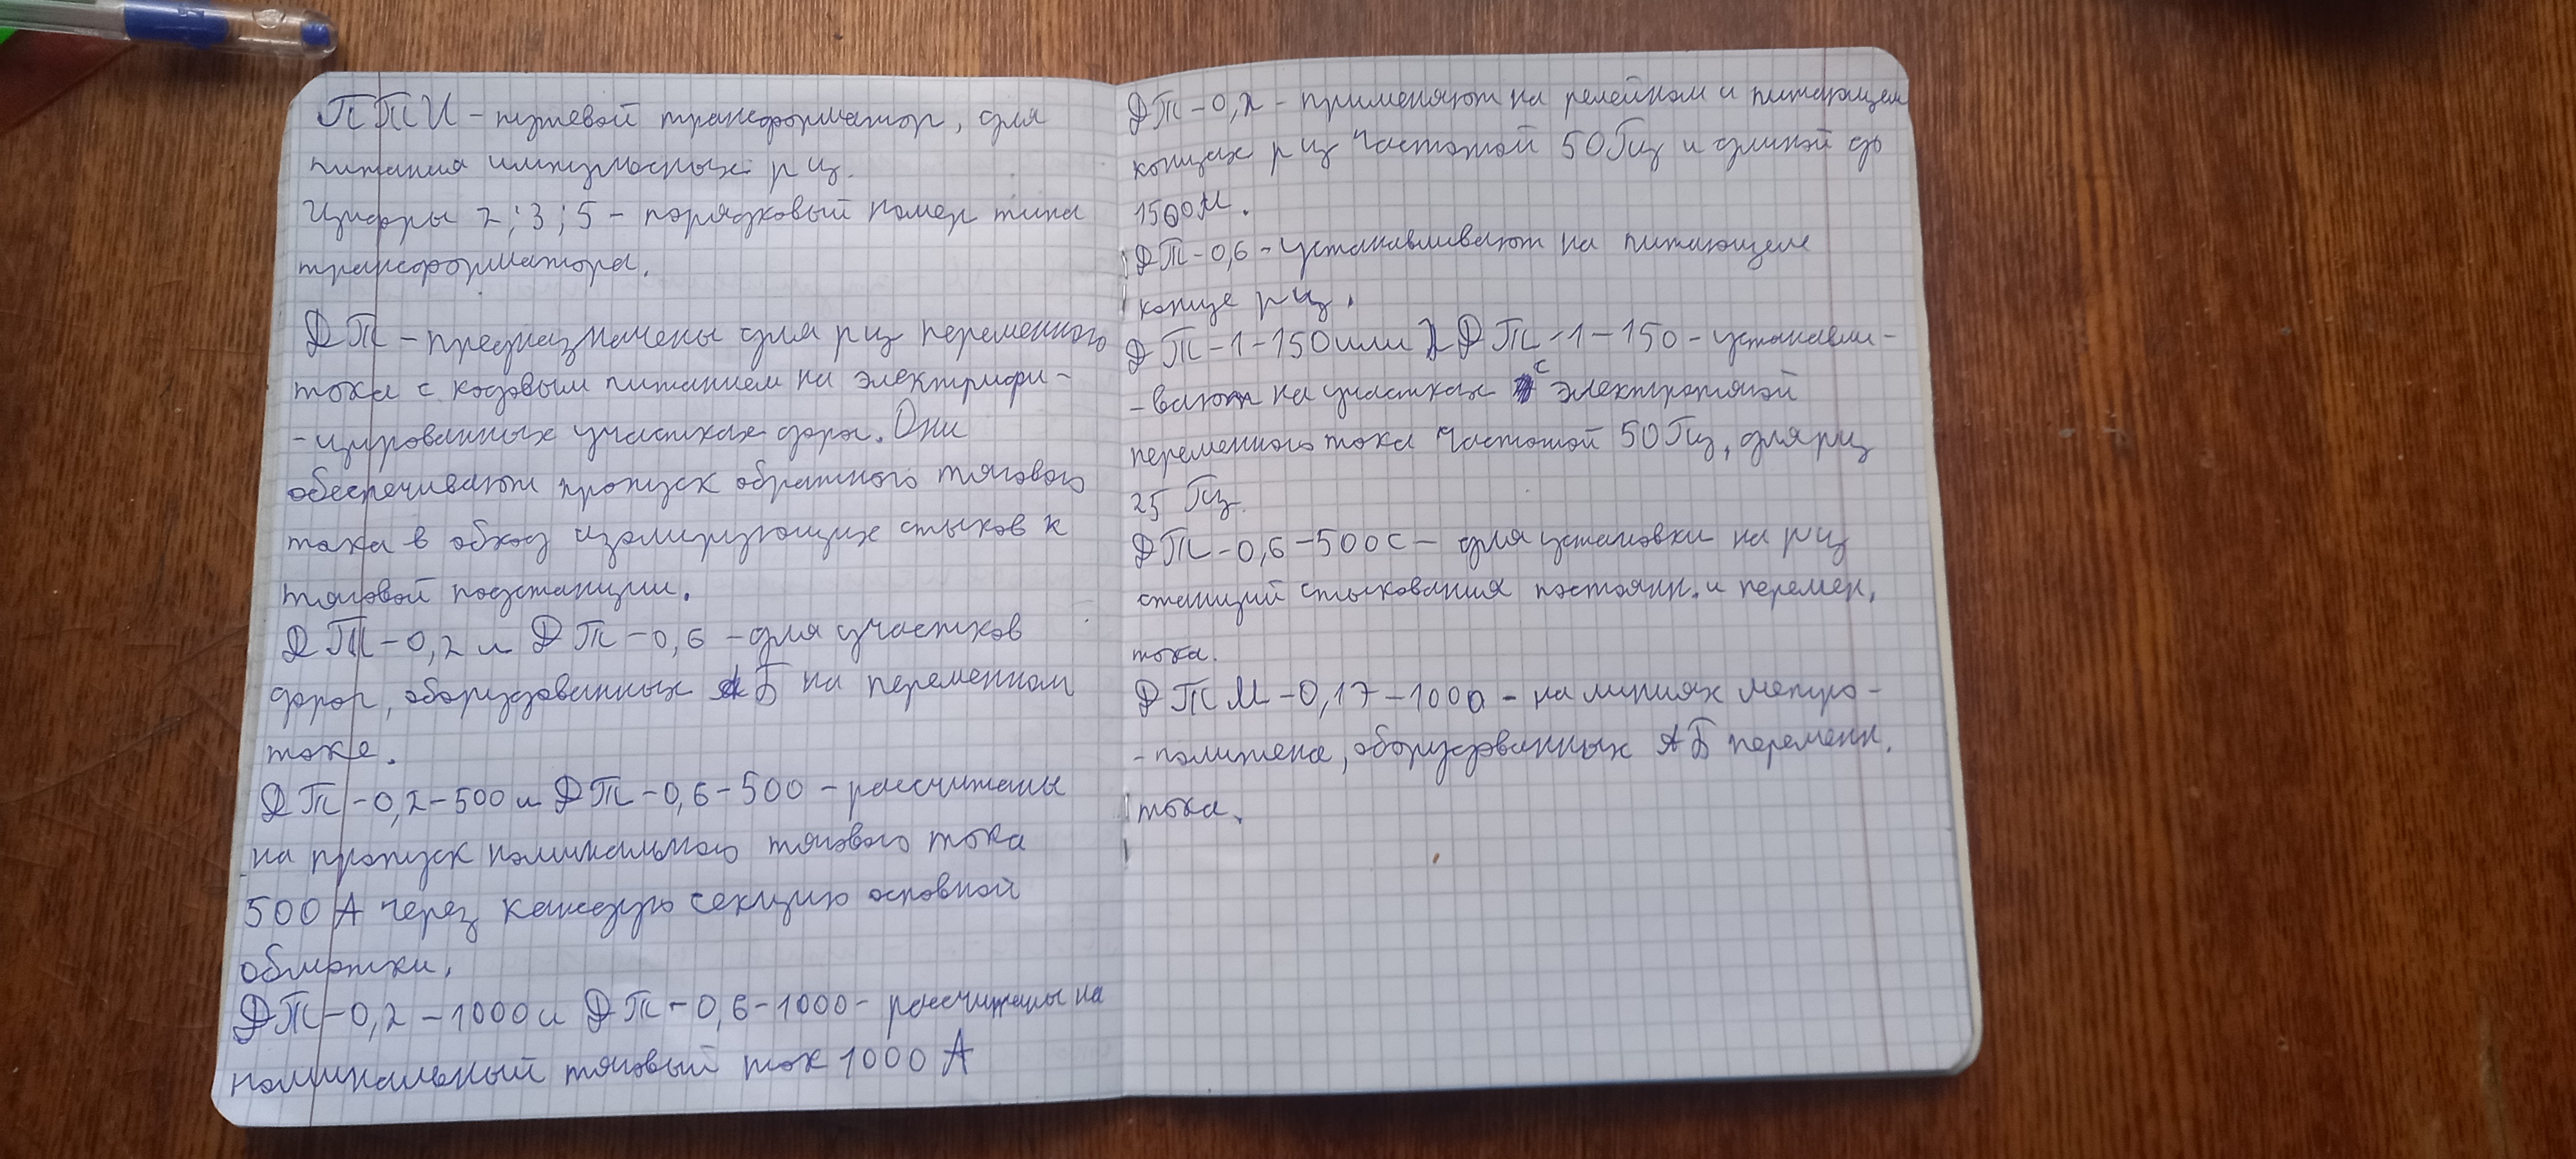 ПТИ - путевой трансформатор, для
питания импульсных рц.
Цифры 2; 3; 5 - порядковый номер типа
трансформатора.
ДТ - предназначены для рц переменного
тока с кодовым питанием на электрифи-
-цированных участках дорог. Они
обеспечивают пропуск обратного тягового
тока в обход изолирующих стыков к
тяговой подстанции.
ДТ-0,2 и ДТ-0,6 - для участков
дорог, оборудованных АБ на переменном
токе.
ДТ-0,2-500 и ДТ-0,6-500 - рассчитаны
на пропуск номинального тягового тока
500 А через каждую секцию основной
обмотки.
ДТ-0,2-1000 и ДТ-0,6-1000 - рассчитаны на
номинальный тяговый ток 1000 А
ДТ-0,2 - применяют на релейном и питающем
концах рц частотой 50Гц и длиной до
1500м.
ДТ-0,6 - устанавливают на питающем
конце рц.
ДТ-1-150 или 2ДТ-1-150 - устанавли-
-вают на участках с электротягой
переменного тока частотой 50Гц, для рц
25 Гц.
ДТ-0,6-500С - для установки на рц
станций стыкования постоянн. и перемен.
тока.
ДТМ-0,17-1000 - на линиях метро-
-политена, оборудованных АБ переменн.
тока.